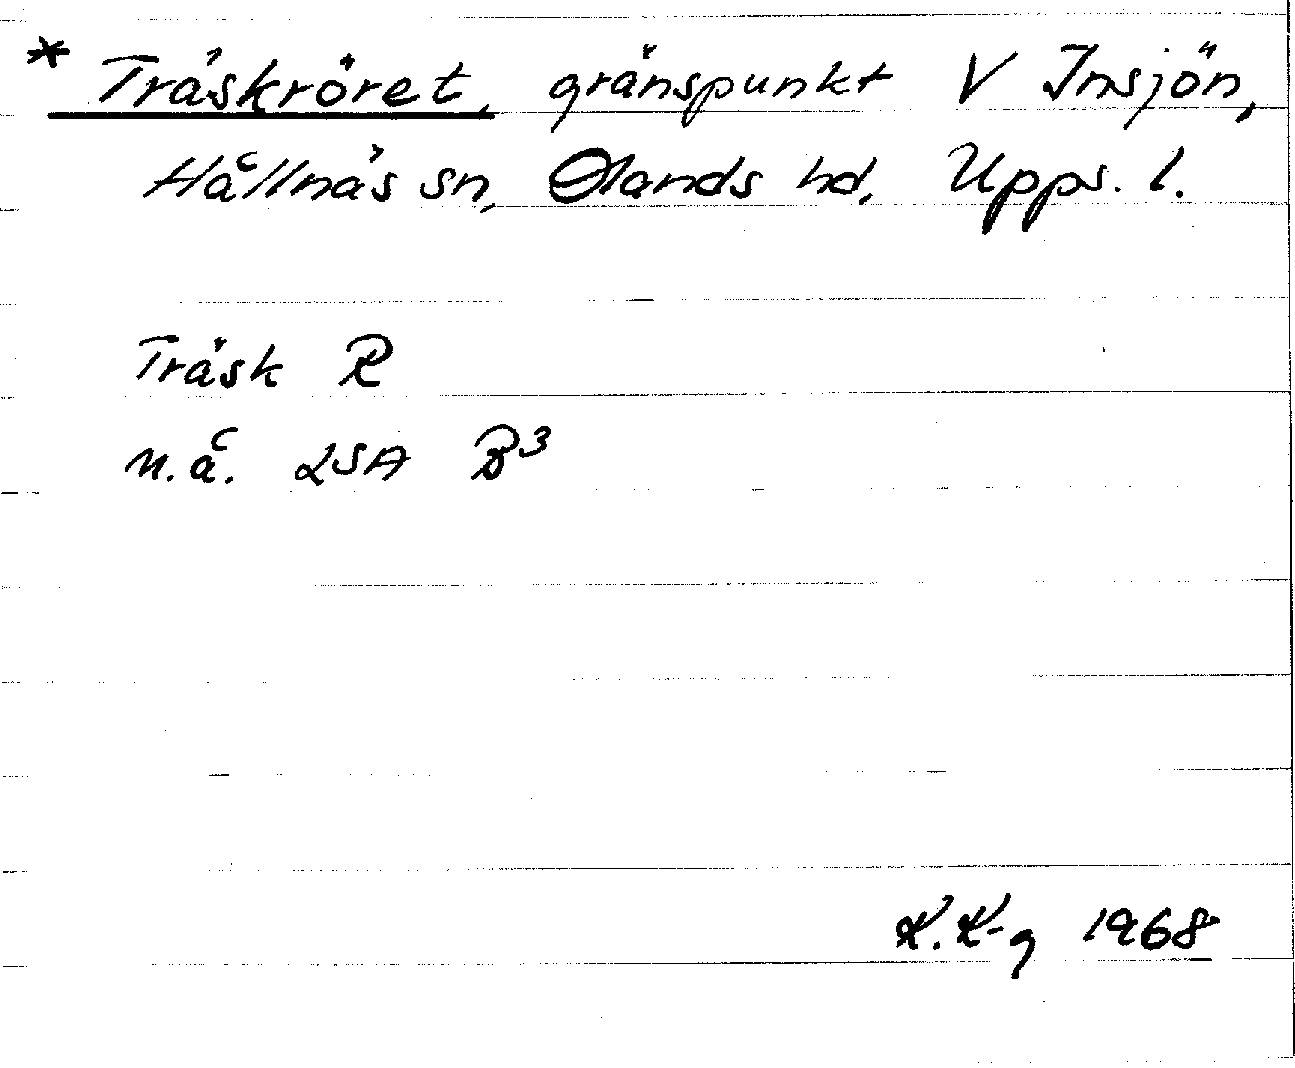 * Träskröret, gränspunkt V Insjön,
Hållnäs sn, Ølands hd, Upps. l.
Träsk R
n.å. LSA B3
K.K-g 1968